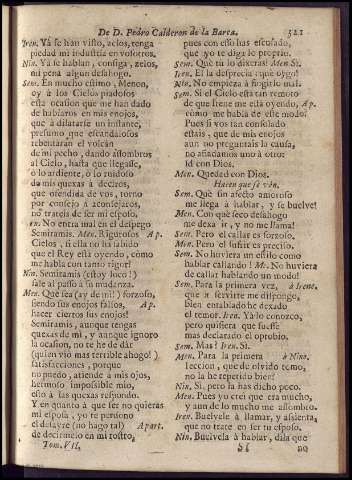 De D. Pedro Calderon de la Barca. 321
Iren. Yá se han visto, zelos, tenga
piedad mi industria en vosotros.
Nin. Yá se hablan, consiga, zelos,
mi pena algun desahogo.
Sem. En mucho estimo, Menon,
oy á los Cielos piadosos
esta ocasion que me han dado
de hablaros en mis enojos,
que à dilatarse un instante,
presumo, que escandalosos
rebentaràn el volcàn
de mi pecho, dando assombros
al Cielo, hasta que llegasse,
ò lo ardiente, ò lo ruidoso
de mis quexas à deciros,
que ofendida de vos, tomo
por consejo á aconsejaros,
no trateis de ser mi esposo.
Iren. No entra mal en el despego
Semiramis. Men. Rigurosos Ap.
Cielos, si ella no ha sabido
que el Rey està oyendo, còmo
me habla con tanto rigor?
Nin. Semiramis (estoy loco!)
sale al passo à su mudanza.
Men. Què sea (ay de mi!) forzoso,
siendo sus enojos falsos, Ap.
hacer ciertos sus enojos!
Semiramis, aunque tengas
quexas de mi, y aunque ignoro
la ocasion, no te he de dàr
(quien viò mas terrible ahogo!)
satisfacciones, porque
no puedo, atiende à mis ojos,
hermoso impossible mio,
esto à las quexas respondo.
Y en quanto à que ser no quieras
mi esposa, yo te perdono
el delayre (no hago tal) Apart.
de decirmelo en mi rostro,
Tom. VII.
pues con esto has escusado,
que yo te diga lo proprio.
Sem. Què tù lo dixeras! Men. Si.
Iren. El la desprecia: què oygo!
Nin. No empieza à fingirlo mal.
Sem. Si el Cielo està tan remoto
de que Irene me està oyendo, Ap.
còmo me habla de este modo!
Pues si vos tan consolado
estais, que de mis enojos
aun no preguntais la causa,
no añadamos uno à otro:
Id con Dios.
Men. Quedad con Dios.
Hacen que se vàn.
Sem. Què sin afecto amoroso
me llega à hablar, y se buelve!
Men. Con què seco desahogo
me dexa ir, y no me llama!
Sem. Pero el callar es forzoso.
Men. Pero el sufrir es preciso.
Sem. No huviera un estilo como
hablar callando! Me. No huviera
de callar hablando un modo!
Sem. Para la primera vez, à Irene,
que à servirte me dispongo,
bien entablado he dexado
el temor. Iren. Yà lo conozco,
pero quisiera que fuesse
mas declarado el oprobio.
Sem. Mas? Iren. Si.
Men. Para la primera à Nino,
leccion, que de olvido tomo,
no la he repetido bien?
Nin. Si, pero la has dicho poco.
Men. Pues yo creì que era mucho,
y aun de lo mucho me assombro.
Iren. Buelvele à llamar, y assienta,
que no trate en ser tu esposo.
Nin. Buelvela à hablar, dila que
Sf no